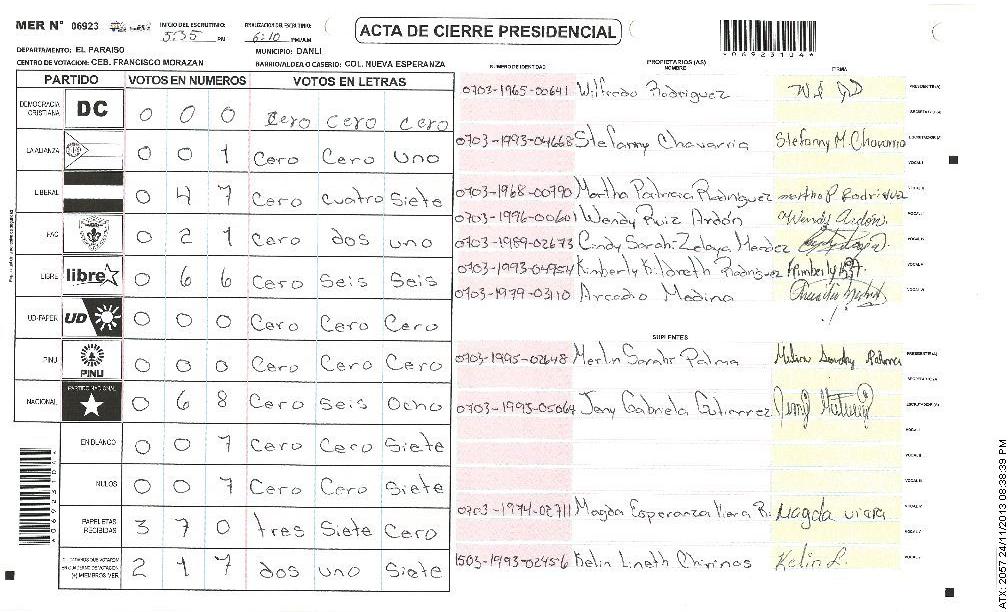 MER N° 06923
INICIO DEL ESCRUTINIO: 5:35 PM
FINALIZACION DEL ESCRUTINIO: 6:10 PM/AM
ACTA DE CIERRE PRESIDENCIAL
DEPARTAMENTO: EL PARAISO
MUNICIPIO: DANLI
CENTRO DE VOTACION: CEB. FRANCISCO MORAZAN
BARRIO/ALDEA O CASERIO: COL. NUEVA ESPERANZA
PARTIDO VOTOS EN NUMEROS VOTOS EN LETRAS
DEMOCRACIA CRISTIANA DC 0 0 0 Cero Cero Cero
LA ALIANZA 0 0 1 Cero Cero Uno
LIBERAL 0 4 7 Cero cuatro Siete
PAC 0 2 1 Cero dos uno
LIBRE libre 0 6 6 Cero Seis Seis
UD-FAPER UD 0 0 0 Cero Cero Cero
PINU PINU 0 0 0 Cero Cero Cero
NACIONAL PARTIDO NACIONAL 0 6 8 Cero Seis Ocho
EN BLANCO 0 0 7 Cero Cero Siete
NULOS 0 0 7 Cero Cero Siete
PAPELETAS RECIBIDAS 3 7 0 tres Siete Cero
2 1 7 dos uno Siete
NUMERO DE IDENTIDAD
PROPIETARIOS (AS)
NOMBRE
FIRMA
0703-1965-00641 Wilfredo Rodriguez PRESIDENTE(A)
SECRETARIO(A)
0703-1993-04668 Stefanny Chavarria Stefanny M. Chavarria ESCRUTADOR(A)
VOCAL I
0703-1968-00790 Martha Patricia Rodriguez martha P. Rodriguez
0703-1996-00601 Wendy Ruiz Ardón Wendy Ardón
0703-1989-02673 Cindy Sarahi Zelaya Mendez
0703-1993-04954 Kimberly Rodriguez Kimberly
0703-1979-03110 Arcadio Medina
SUPLENTES
0703-1995-02648 Merlin Sarahi Palma PRESIDENTE(A)
SECRETARIO(A)
0703-1995-05064 Jeny Gabriela Gutierrez ESCRUTADOR(A)
0703-1974-02711 Magda Esperanza Viera R. Magda viera
1503-1993-02456 Kelin Lineth Chirinos Kelin L.
*06923104*
ATX: 2057 24/11/2013 08:38:39 PM